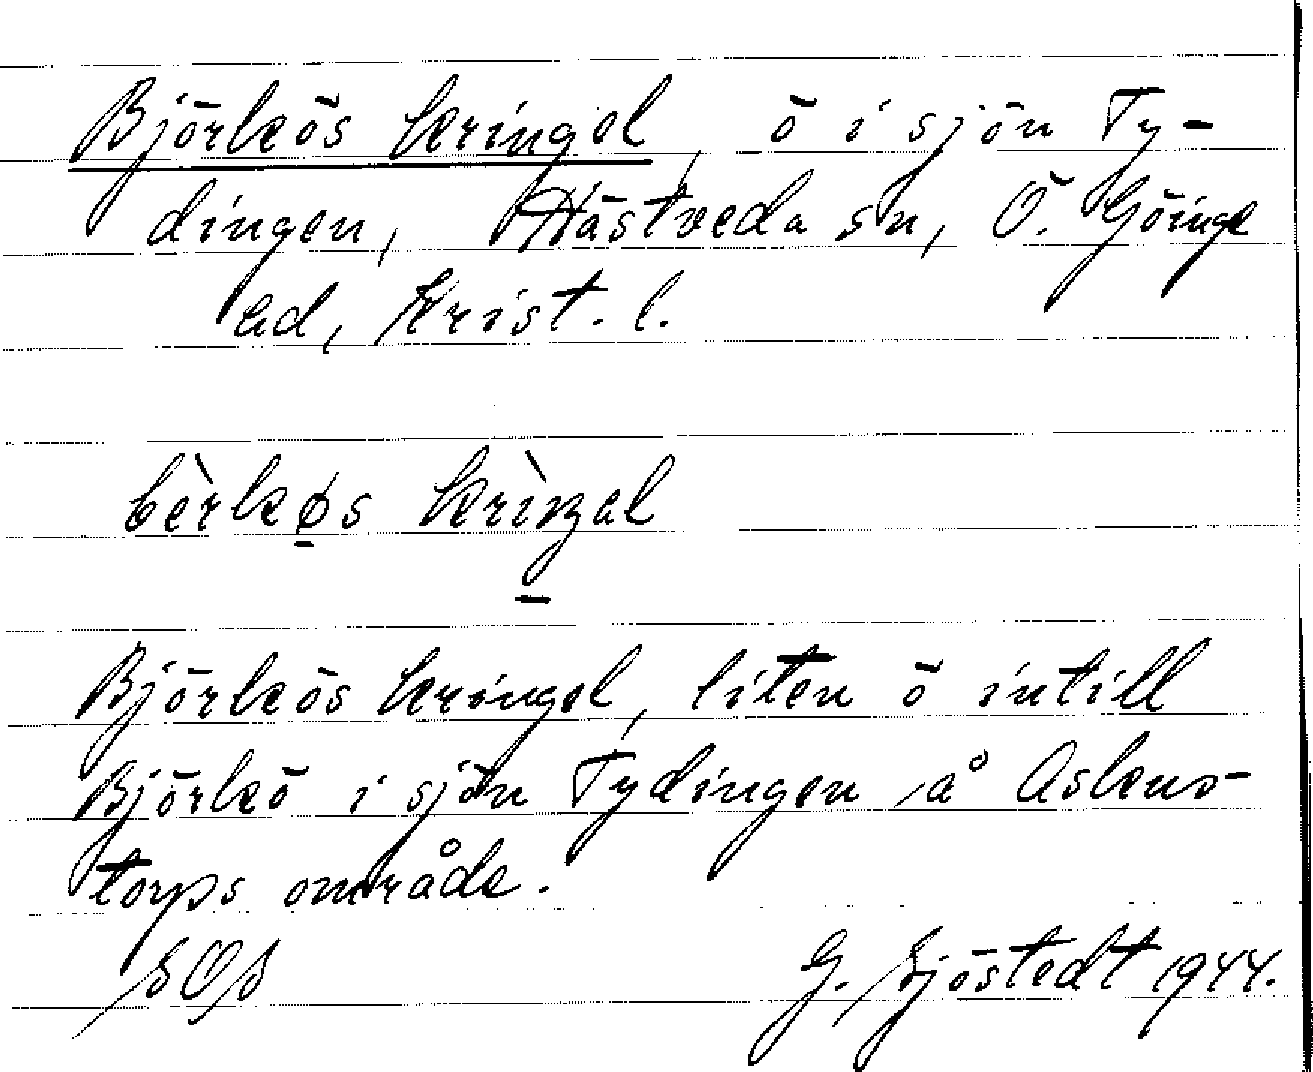 Björkös kringel, ö i sjön Ty-
dingen, Hästveda sn, Ö. Göinge
hd, Krist. l.
bèrkøs krìŋəl
Björkös kringel, liten ö intill
Björkö i sjön Tydingen å Askens-
torps område.
SOS
G. Sjöstedt 1944.